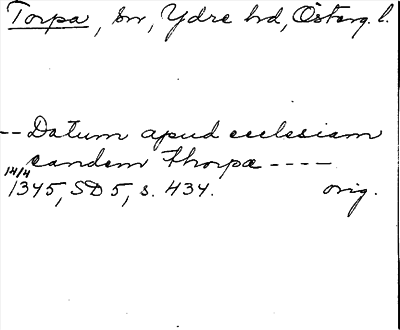 Torpa, sn, Ydre hd, Österg. l.
-- Datum apud ecclesiam
eandem thorpa ----
14/4
1345, SD 5, s. 434. orig.